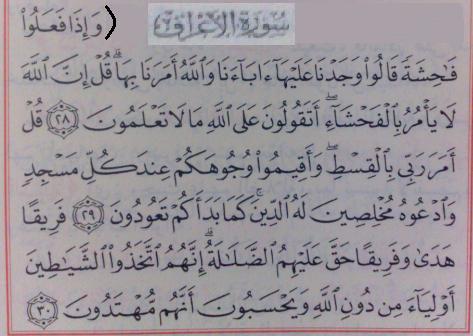 سُورَةُ الأَعْرَافِ ) وَإِذَا فَعَلُواْ
فَٰحِشَةً قَالُواْ وَجَدْنَا عَلَيْهَآ ءَابَآءَنَا وَٱللَّهُ أَمَرَنَا بِهَا ۗ قُلْ إِنَّ ٱللَّهَ
لَا يَأْمُرُ بِٱلْفَحْشَآءِ ۖ أَتَقُولُونَ عَلَى ٱللَّهِ مَا لَا تَعْلَمُونَ ٢٨ قُلْ
أَمَرَ رَبِّى بِٱلْقِسْطِ ۖ وَأَقِيمُواْ وُجُوهَكُمْ عِندَ كُلِّ مَسْجِدٍ
وَٱدْعُوهُ مُخْلِصِينَ لَهُ ٱلدِّينَ ۚ كَمَا بَدَأَكُمْ تَعُودُونَ ٢٩ فَرِيقًا
هَدَىٰ وَفَرِيقًا حَقَّ عَلَيْهِمُ ٱلضَّلَٰلَةُ ۗ إِنَّهُمُ ٱتَّخَذُواْ ٱلشَّيَٰطِينَ
أَوْلِيَآءَ مِن دُونِ ٱللَّهِ وَيَحْسَبُونَ أَنَّهُم مُّهْتَدُونَ ٣٠